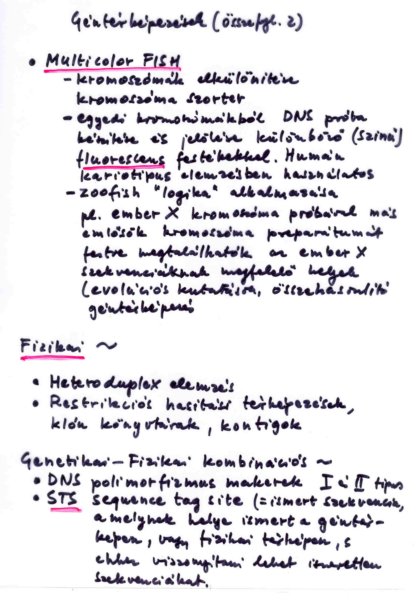 Géntérképezések (összefogl. 2)
• Multicolor FISH
– kromoszómák elkülönítése
kromoszóma szorter
– egyedi kromoszómákból DNS próba
készítése és jelölése különböző (színű)
fluorescens festékekkel. Humán
kariotípus elemzésben használatos
– zoofish "logika" alkalmazása
pl. ember X kromoszóma próbával más
emlősök kromoszóma preparátumát
festve megtalálhatók az ember X
szekvenciáknak megfelelő helyek
(evolúciós kutatásra, összehasonlító
géntérképezés
Fizikai ~
• Heteroduplex elemzés
• Restrikciós hasítási térképezések,
klón könyvtárak, kontigok
Genetikai – Fizikai kombinációs ~
• DNS polimorfizmus makerek I és II típus
• STS sequence tag site (= ismert szekvencia,
amelynek helye ismert a géntér-
képen, vagy fizikai térképen, s
ehhez viszonyítani lehet ismeretlen
szekvenciákat.